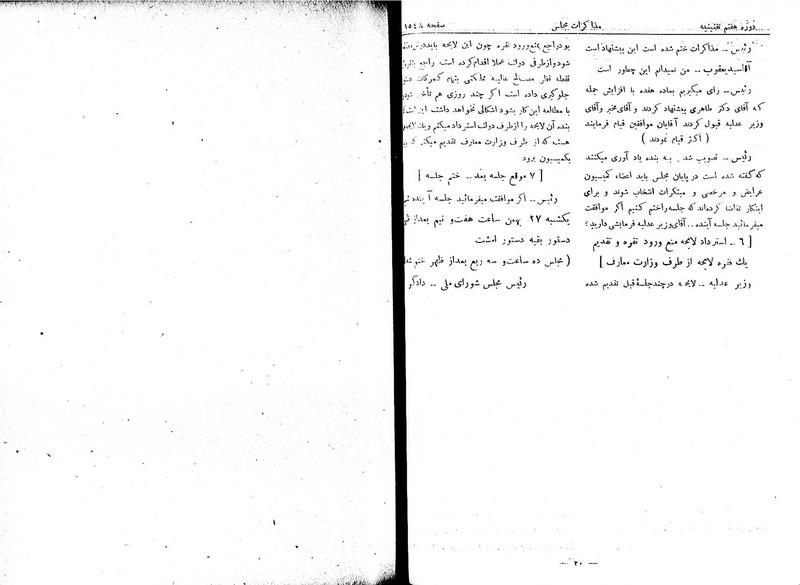 دوره هفتم تقنینیه
مذاکرات مجلس
صفحه ۱۵۴۸
رئیس .. مذاکرات ختم شده است این پیشنهاد است
آقا سید یعقوب .. من نمیدانم این چطور است
رئیس .. رای میگیریم بماده هفده با افزایش جمله
که آقای دکتر طاهری پیشنهاد کردند و آقای مخبر و آقای
وزیر عدلیه قبول کردند آقایان موافقین قیام فرمایند
( اکثر قیام نمودند )
رئیس .. تصویب شد . به بنده یاد آوری میکنند
که گفته شده است در پایان مجلس باید اعضاء کمیسیون
عرایض و مرخصی و مبتکرات انتخاب شوند و برای
اینکار تقاضا کرده‌اند که جلسه را ختم کنیم اگر موافقت
میفرمائید جلسه آینده .. آقای وزیر عدلیه فرمایشی دارید؟
[ ٦ .. استرداد لایحه منع ورود نقره و تقدیم
یك فقره لایحه از طرف وزارت معارف ]
وزیر عدلیه .. لایحه در چند جلسهٔ قبل تقدیم شده
بود راجع بمنع ورود نقره چون این لایحه باید
شود و از طرفی دولت عملا اقدام کرده است راجع
نقطه نظر مصالح عالیه مملکتی بتمام گمرکات
جلوگیری داده است اگر چند روزی هم تأخیر
با مطالعه این کار بشود اشکالی نخواهد داشت این است
بنده آن لایحه را از طرف دولت استرداد میکنم و یك
هست که از طرف وزارت معارف تقدیم میکنم که
بکمیسیون برود
[ ۷ موقع جلسه بعد .. ختم جلسه ]
رئیس .. اگر موافقت میفرمائید جلسه آینده
یکشنبه ۲۷ بهمن ساعت هفت و نیم بعد از
دستور بقیه دستور امشب
( مجلس ده ساعت و سه ربع بعد از ظهر ختم شد
رئیس مجلس شورای ملی .. دادگر
— ۲۰ —